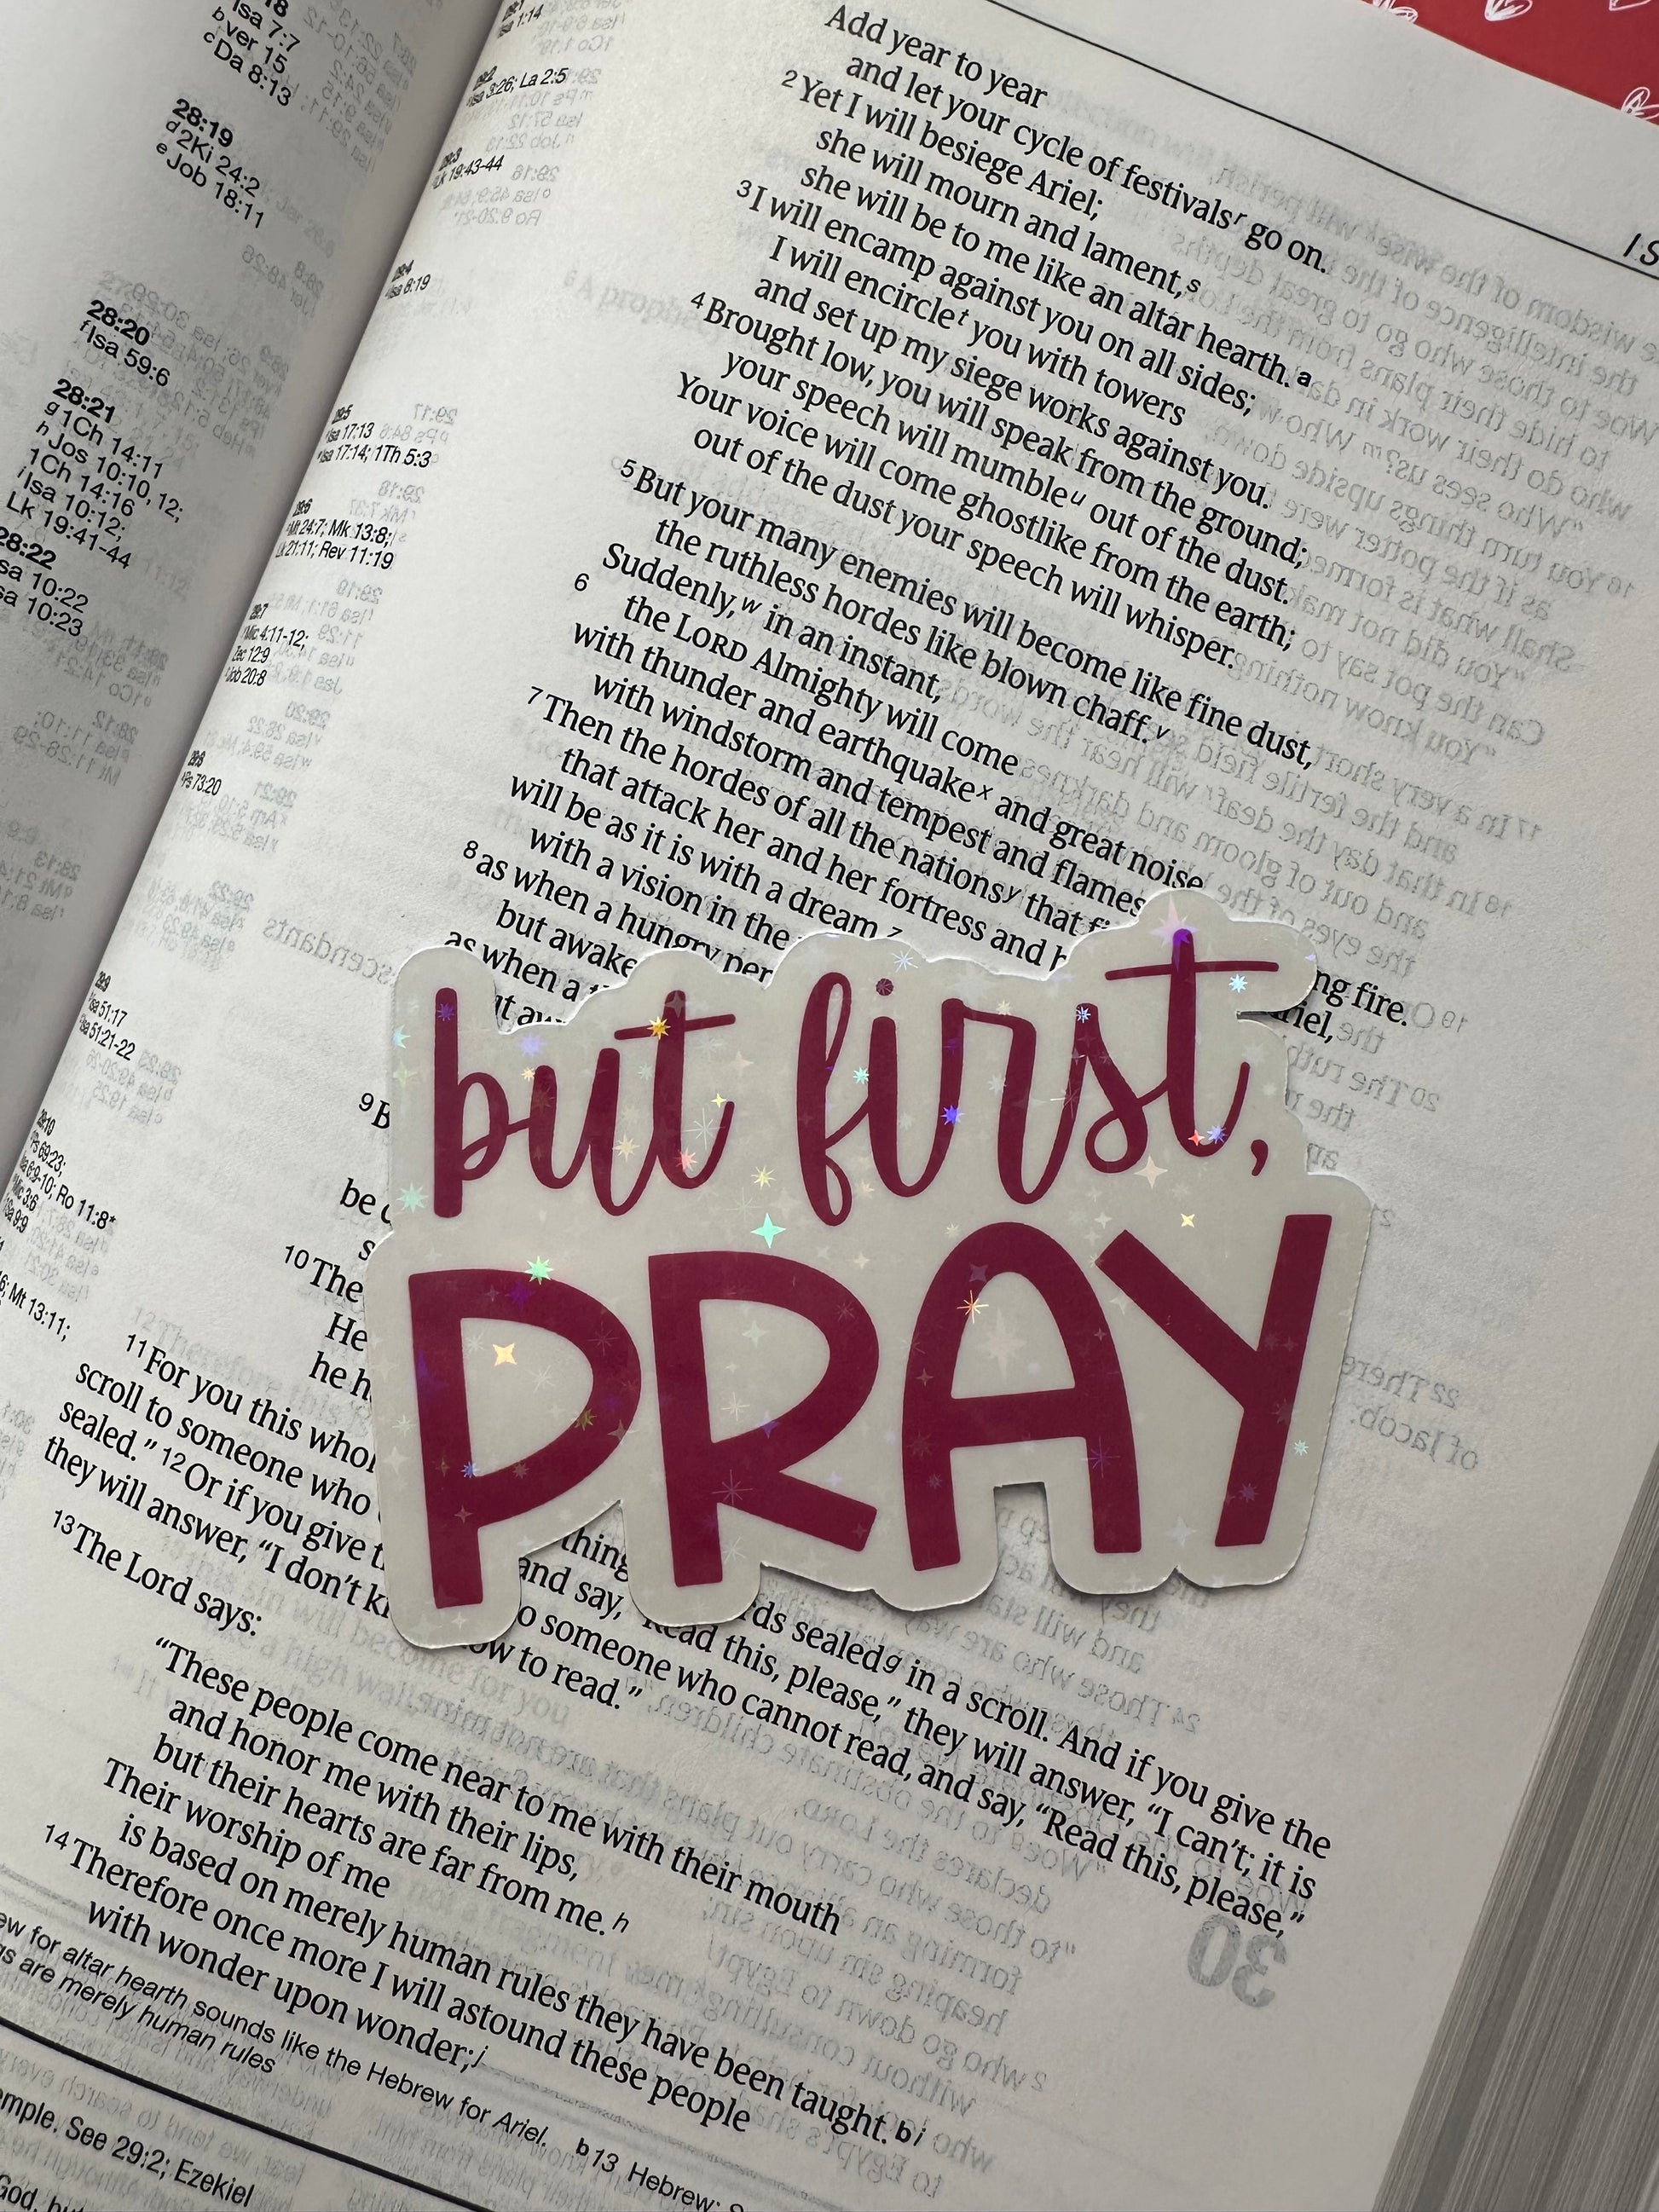 18
Isa 7:7
b ver 15
c Da 8:13
28:19
d 2Ki 24:2
e Job 18:11
28:20
f Isa 59:6
28:21
g 1Ch 14:11
h Jos 10:10, 12;
1Ch 14:16
i Isa 10:12;
Lk 19:41-44
28:22
Isa 10:22
Isa 10:23
Isa 1:14
Isa 3:26; La 2:5
Lk 19:43-44
Isa 8:19
29:5
Isa 17:13
Isa 17:14; 1Th 5:3
29:6
Mt 24:7; Mk 13:8;
Lk 21:11; Rev 11:19
29:7
Mic 4:11-12;
Zec 12:9
Job 20:8
29:8
Ps 73:20
29:9
Isa 51:17
Isa 51:21-22
29:10
Ps 69:23;
Isa 6:9-10; Ro 11:8*
Mic 3:6
Mt 13:11;
Add year to year
and let your cycle of festivals r go on.
2 Yet I will besiege Ariel;
she will mourn and lament, s
she will be to me like an altar hearth. a
3 I will encamp against you on all sides;
I will encircle t you with towers
and set up my siege works against you.
4 Brought low, you will speak from the ground;
your speech will mumble u out of the dust.
Your voice will come ghostlike from the earth;
out of the dust your speech will whisper.
5 But your many enemies will become like fine dust,
the ruthless hordes like blown chaff. v
Suddenly, w in an instant,
6 the LORD Almighty will come
with thunder and earthquake x and great noise,
with windstorm and tempest and flames
ing fire.
7 Then the hordes of all the nations y that fi
riel,
that attack her and her fortress and b
will be as it is with a dream, z
with a vision in the
8 as when a hungry per
but awake
as when a
but first,
PRAY
9 B
be
10 The
He
he h
11 For you this whol
thing
rds sealed g in a scroll. And if you give the
scroll to someone who
and say, "Read this, please," they will answer, "I can't; it is
sealed." 12 Or if you give
o someone who cannot read, and say, "Read this, please,"
they will answer, "I don't k
ow to read."
13 The Lord says:
"These people come near to me with their mouth
and honor me with their lips,
but their hearts are far from me. h
Their worship of me
is based on merely human rules they have been taught. b i
14 Therefore once more I will astound these people
with wonder upon wonder; j
for altar hearth sounds like the Hebrew for Ariel. b 13 Hebrew;
are merely human rules
emple. See 29:2; Ezekiel